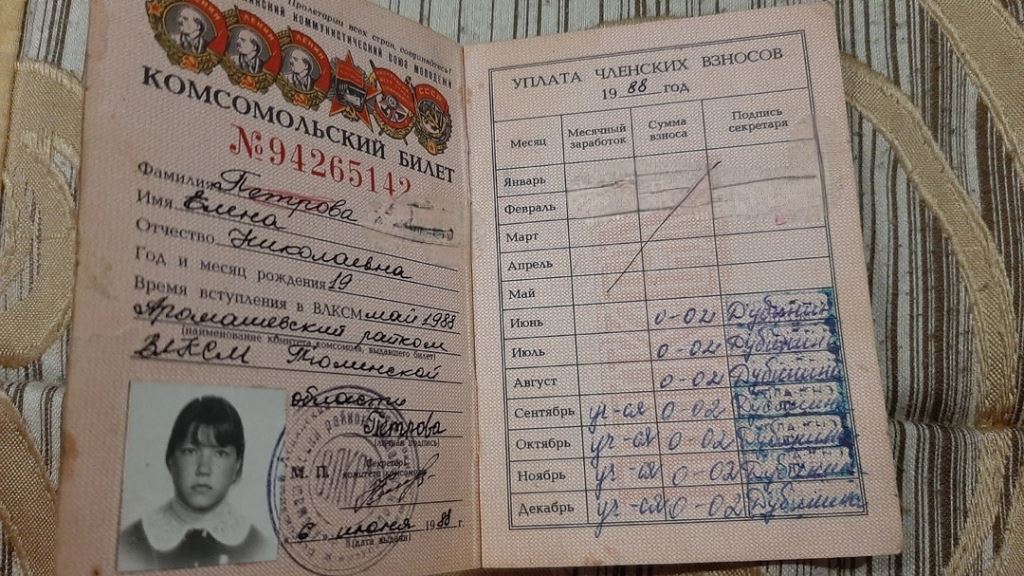 Пролетарии всех стран, соединяйтесь!
КОММУНИСТИЧЕСКИЙ СОЮЗ МОЛОДЕЖИ
КОМСОМОЛЬСКИЙ БИЛЕТ
№94265142
Фамилия Петрова
Имя Елена
Отчество Николаевна
Год и месяц рождения 19
Время вступления в ВЛКСМ май 1988
Аромашевский райком
(наименование комитета комсомола, выдавшего билет)
ВЛКСМ Тюменской
области
Петрова
(личная подпись)
М. П. Секретарь
комитета комсомола
6 июня 1988 г.
(дата выдачи)
УПЛАТА ЧЛЕНСКИХ ВЗНОСОВ
19 88 год
Месяц Месячный заработок Сумма взноса Подпись секретаря
Январь
Февраль
Март
Апрель
Май
Июнь 0-02
Июль 0-02
Август 0-02
Сентябрь уч-ся 0-02
Октябрь уч-ся 0-02
Ноябрь уч-ся 0-02
Декабрь уч-ся 0-02